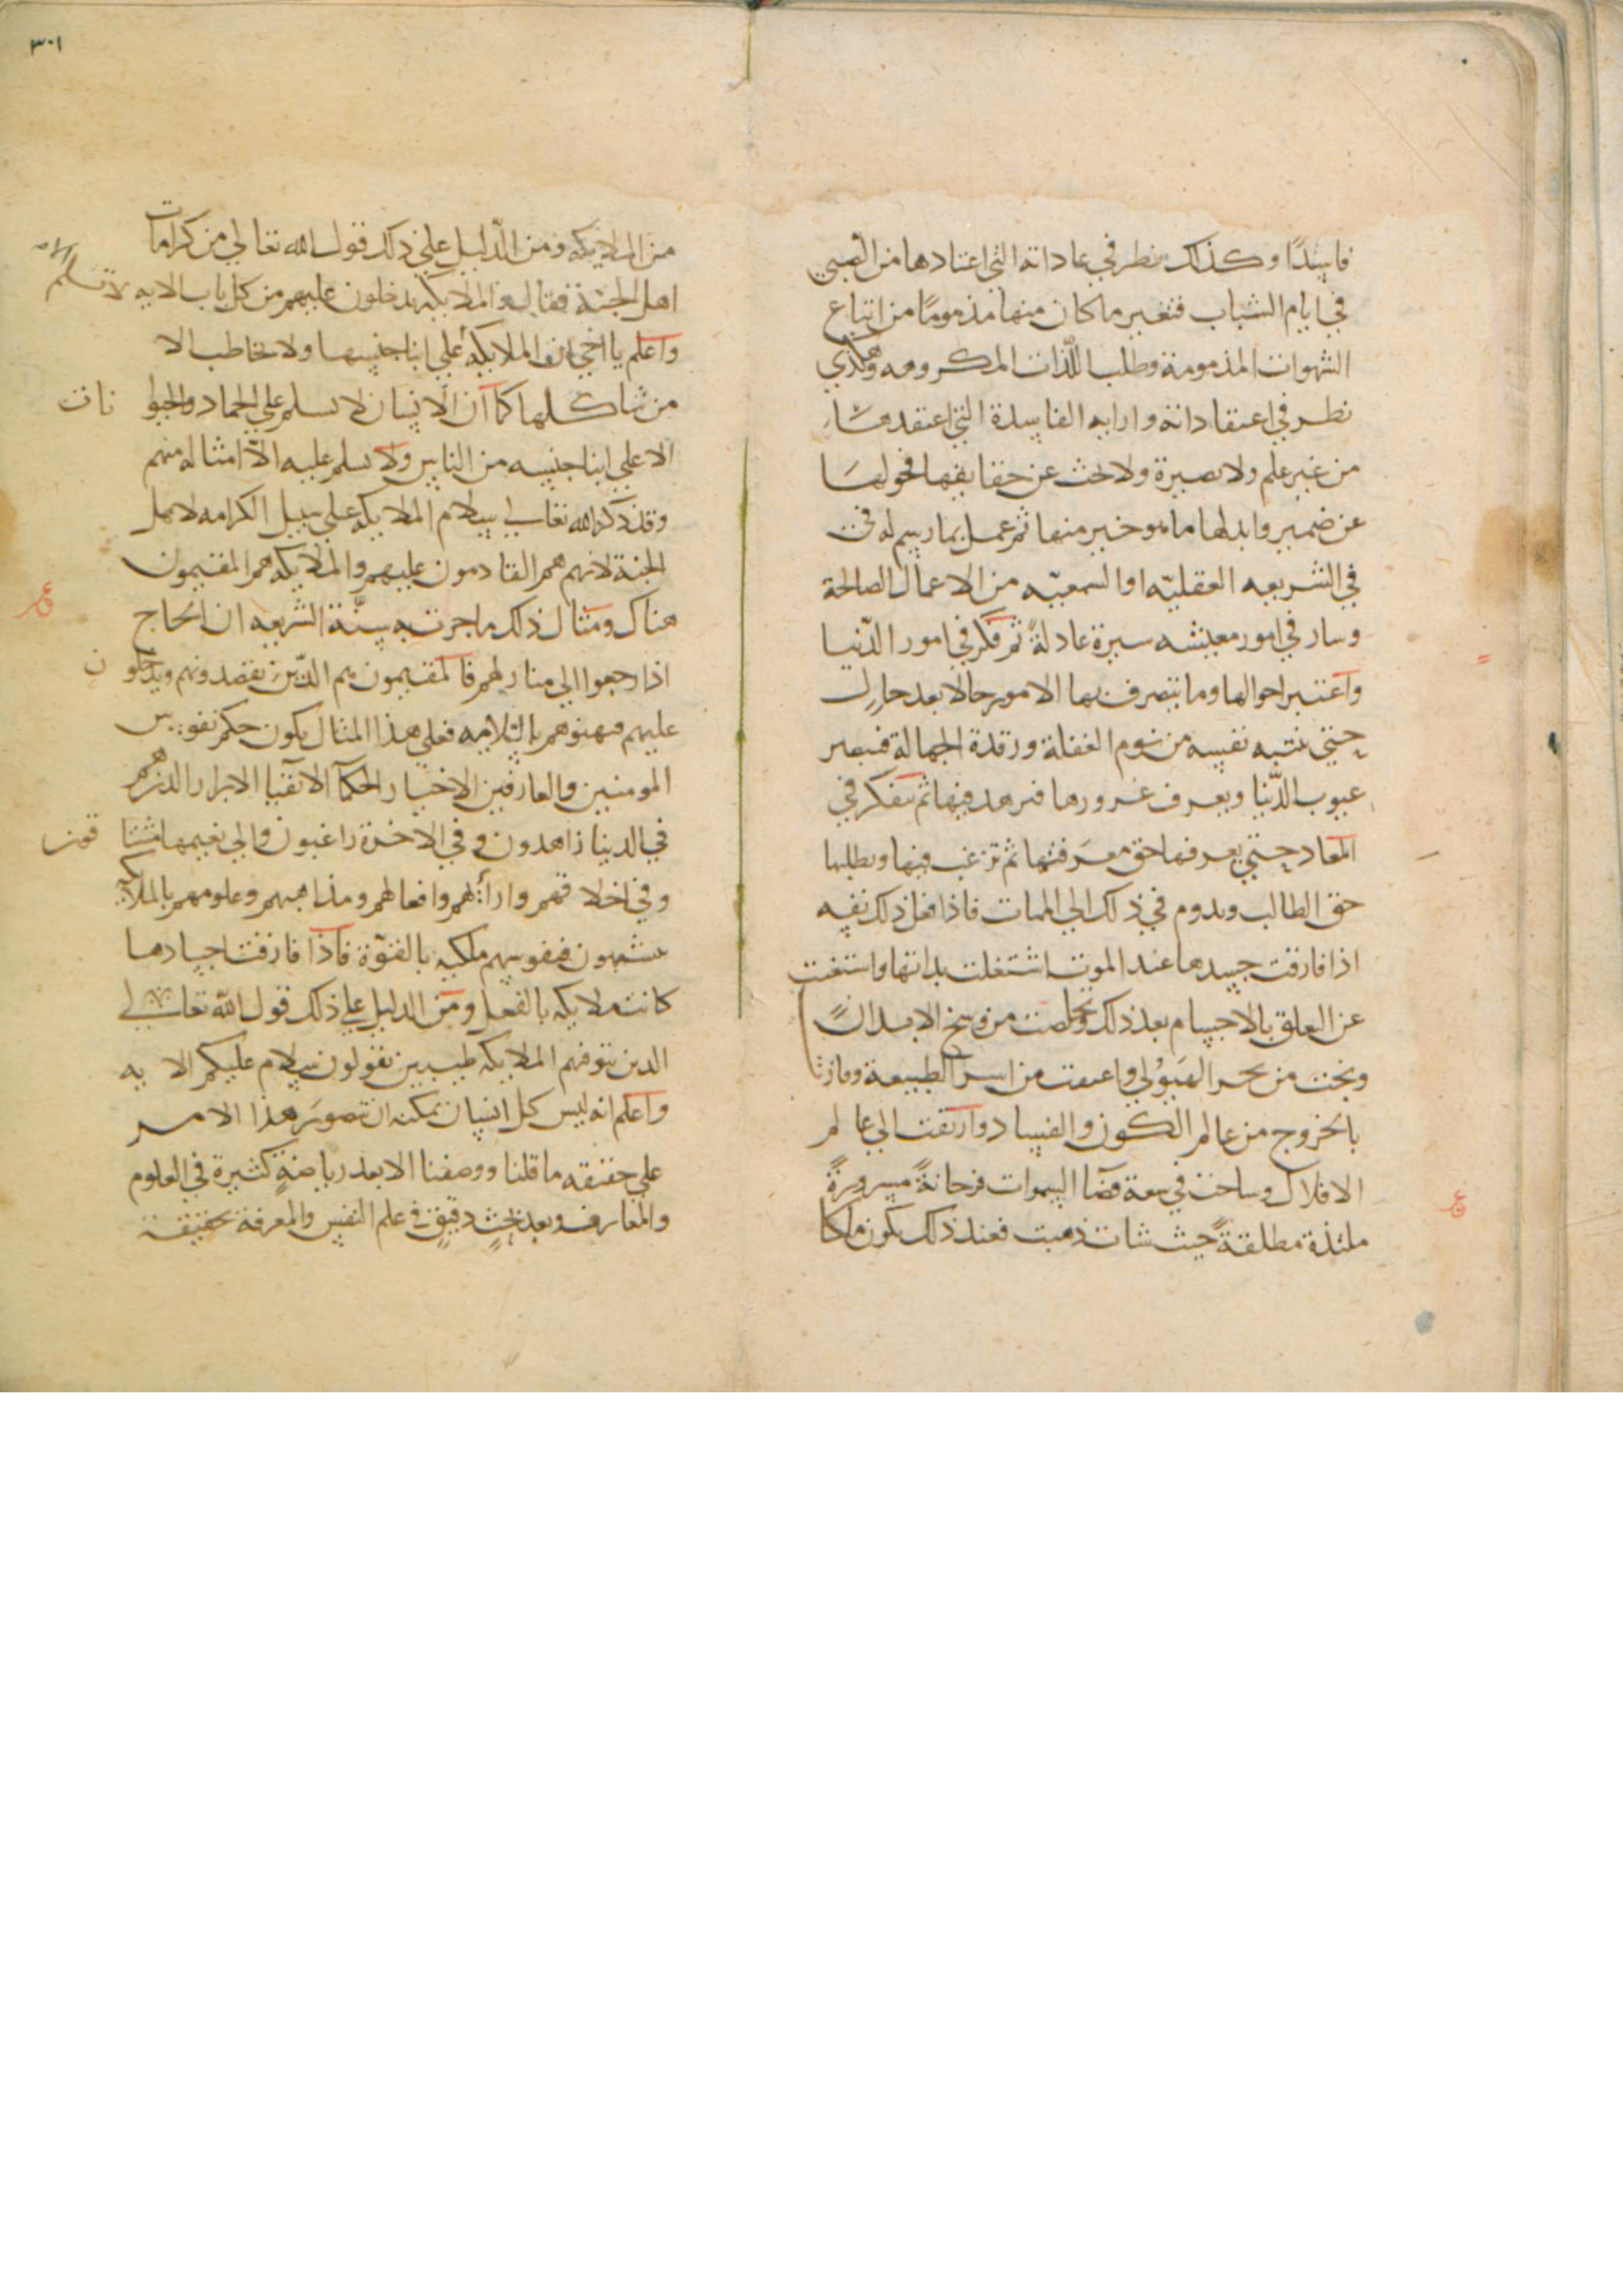 فاسدًا وكذلك ينظر في عاداته التي اعتادها من الصبي
في ايام الشباب فتغير ما كان منها مذمومًا من اتباع
الشهوات المذمومة وطلب اللّذات المكروهه وهكذي
نظر في اعتقاداته وارايه الفاسدة التي اعتقدها
من غير علم ولا بصيرة ولا بحث عن حقايقها فحولها
عن ضمير وابدلها ما هو خير منها ثم عمل بما رسم له في
في الشريعه العقليّه او السمعيّه من الاعمال الصالحة
وسار في امور معيشته سيرة عادلةً ثم فكر في امور الدّنيا
واعتبر احوالها وما يتصرف بها الامور حالا بعد حال
حتي تنتبه نفسه من نوم الغفلة ورقدة الجهالة فيبصر
عيوب الدّنيا ويعرف غرورها فيزهد فيها ثم يتفكر في
المعاد حتي يعرفها حق معرفتها ثم ترغب فيها ويطلبها
حق الطالب ويدوم في ذلك الي الممات فاذا فعل ذلك نفسه
اذا فارقت جسدها عند الموت اشتغلت بذاتها واستغنت
عن التعلق بالاجسام بعد ذلك وتخلصت من وسخ الابدان
ونجت من بحر الهيولي واعتقت من اسر الطبيعة وفازت
بالخروج من عالم الكون والفساد وارتقت الي عالم
الافلاك وساحت في سعة فضآ السموات فرحانةً مسرورةً
ملتذة مطلقةً حيث شات ذهبت فعند ذلك يكون ملكا
٣٠١
من الملايكه ومن الدليل علي ذلك قول الله تعالي من كرامات
اهل الجنة فقال والملايكه يدخلون عليهم من كل باب الايه
واعلم يا اخي ان الملايكه لا تسلم الا علي ابنا جنسها ولا تخاطب الا
من شاكلها كما ان الانسان لا يسلم علي الجماد والحيوانات
الا علي ابنا جنسه من الناس ولا يسلم عليه الا امثاله منهم
وقد ذكر الله تعالي سلام الملايكه علي سبيل الكرامه لاهل
الجنة لانهم هم القادمون عليهم والملايكه هم المقيمون
هناك ومثال ذلك ما جرت به سنّة الشريعه ان الحاج
اذا رجعوا الي منازلهم فالمقيمون هم الذّين يقصدونهم ويدخلون
عليهم فيهنوهم بالسلامه فعلي هذا المثال يكون حكم نفوس
المومنين والعارفين الاخيار الحكمآ الاتقيا الابرار الذين هم
في الدنيا زاهدون وفي الاخرة راغبون والي نعيمها مشتاقون
وفي اخلاقهم وارآئهم وافعالهم ومذاهبهم وعلومهم بالملايكه
يتشبهون فنفوسهم ملكيه بالقوّة فاذا فارقت اجسادها
كانت ملايكه بالفعل ومن الدليل علي ذلك قول الله تعالي
الذين تتوفهم الملايكه طيبين يقولون سلام عليكم الايه
واعلم انه ليس كل انسان يمكنه ان يتصور هذا الامر
علي حقيقه ما قلنا ووصفنا الا بعد رياضةٍ كثيرة في العلوم
والمعارف وبعد بحثٍ دقيقٍ في علم النفس والمعرفة بحقيقة